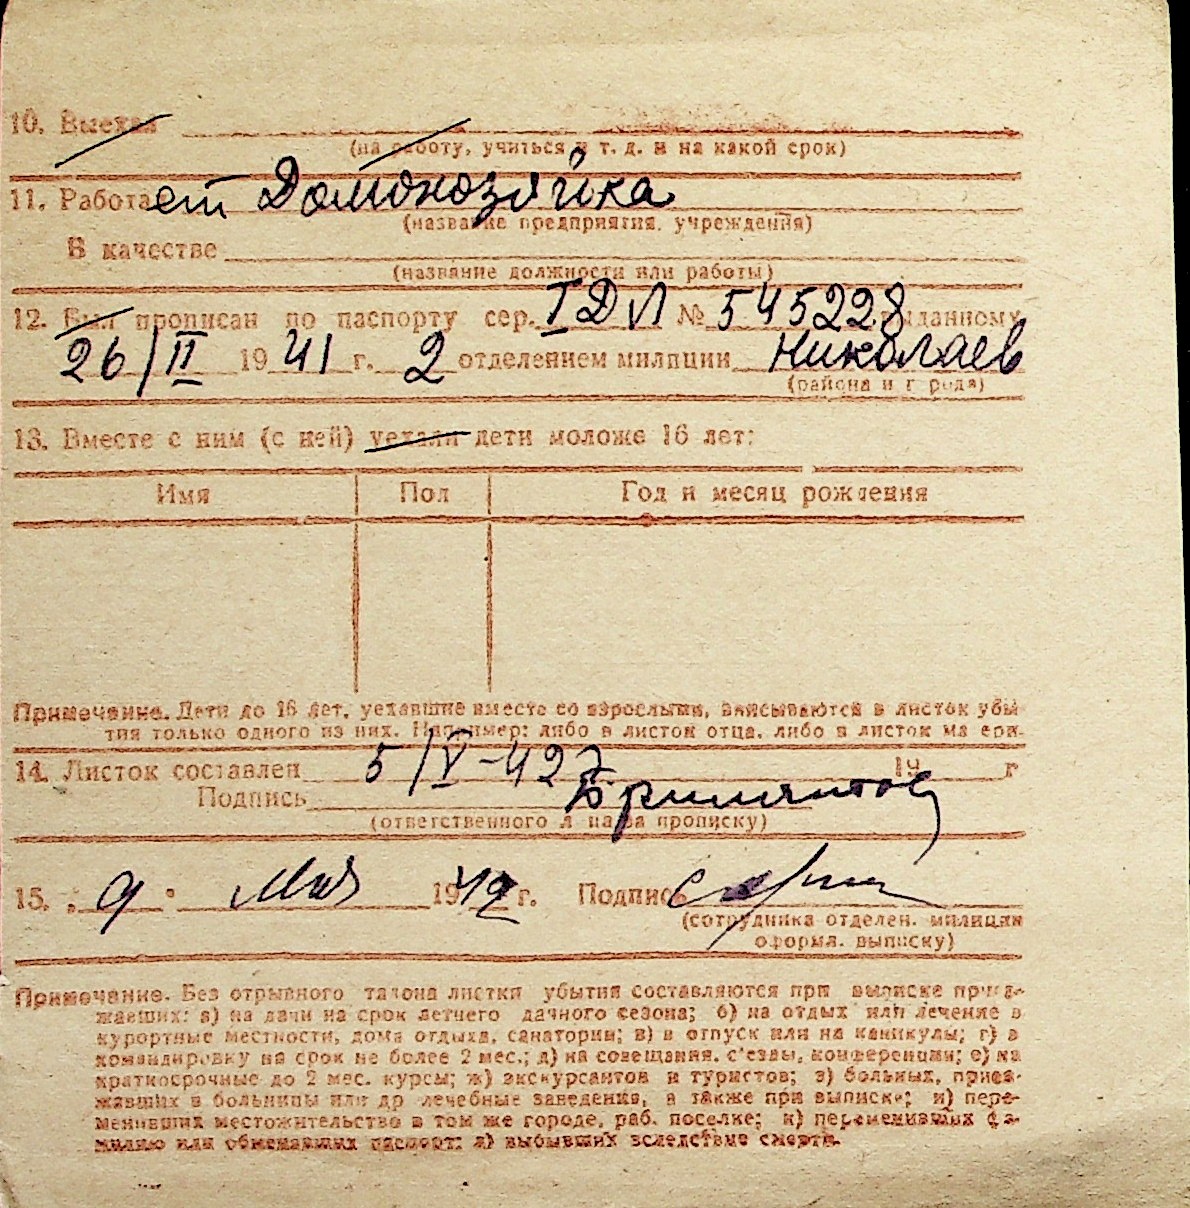 10. Выехал
(на работу, учиться и т. д. и на какой срок)
11. Работает Домохозяйка
(название предприятия, учреждения)
В качестве
(название должности или работы)
12. Был прописан по паспорту сер. № 545228 выданному
26/II 1941 г. 2 отделением милиции Николаев
(района и города)
13. Вместе с ним (с ней) уехали дети моложе 16 лет:
Имя Пол Год и месяц рождения
Примечание. Дети до 16 лет, уехавшие вместе со взрослыми, вписываются в листок убы-
тия только одного из них. Например: либо в листок отца, либо в листок матери.
14. Листок составлен 5/V-42 г. 19 г
Подпись
(ответственного лица за прописку)
15. „9“ Мая 1942 г. Подпись
(сотрудника отделен. милиции
оформл. выписку)
Примечание. Без отрывного талона листки убытия составляются при выписке приез-
жавших: а) на дачи на срок летнего дачного сезона; б) на отдых или лечение в
курортные местности, дома отдыха, санатории; в) в отпуск или на каникулы; г) в
командировку на срок не более 2 мес.; д) на совещания, с'езды, конференции; е) на
краткосрочные до 2 мес. курсы; ж) экскурсантов и туристов; з) больных, приез-
жавших в больницы или др лечебные заведения, а также при выписке; и) пере-
менивших местожительство в том же городе, раб. поселке; к) переменивших фа-
милию или обменявших паспорт; л) выбывших вследствие смерти.